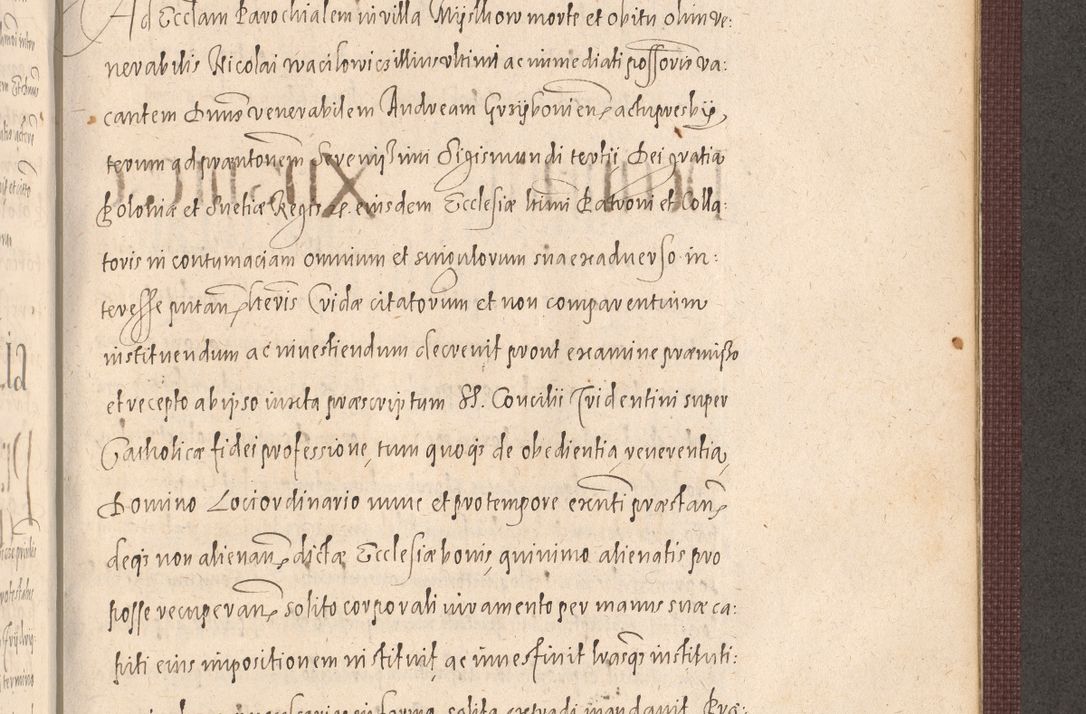 Ad Eccl̃am Parochialem in villa Myslhow morte et obitu olim ve:
nerabilis Nicolai wacilowicz illius vltimi ac immediati possoris va:
cantem Dnũs venerabilem Andream Grzÿboviens̃ actu presbÿ,
terum ad prantonẽm Serenissimi Sigismundi tertii Dei gratia
Poloniæ et Suetiæ Regis &c. eiusdem Ecclesiæ ltĩmi Patroni et Colla:
toris in contumaciam omnium et singulorum sua ex aduerso in:
teresse putan̄ ltẽris Cridæ citatorum et non comparentium
instituendum ac inuestiendum decrevit prout examine præmisso
et recepto ab ipso iuxta præscriptum SS. Concilii Tridentini super
Catholicæ fidei professione, tum quoqȝ de obedientia, reuerentia,
Domino Loci ordinario nunc et pro tempore exñti præstan̄
deqȝ non alienan̄ dictæ Ecclesiæ bonis, quinimo alienatis pro
posse recuperan̄ solito corporali iuramento per manus suæ ca:
piti eius impositionem instituit ac inuestiuit lr̃asqȝ instituti:
in forma solita extradi mandauit Præ: